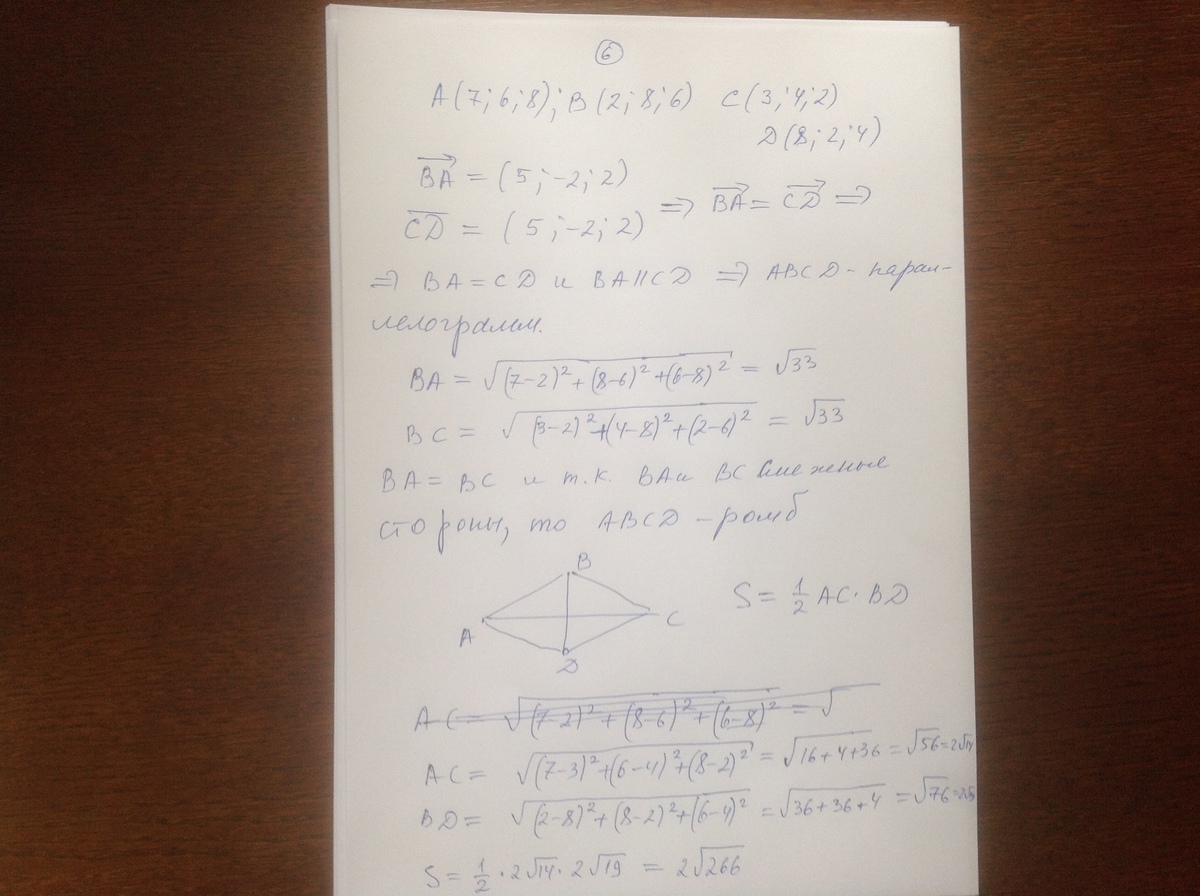 6
A(7;6;8); B(2;8;6) C(3;4;2)
D(8;2;4)
BA = (5;-2;2)
⇒ BA = CD ⇒
CD = (5;-2;2)
⇒ BA = CD и BA || CD ⇒ ABCD - парал-
лелограмм.
BA = √((7-2)²+(8-6)²+(6-8)²) = √33
BC = √((3-2)²+(4-8)²+(2-6)²) = √33
BA = BC и т.к. BA и BC смежные
стороны, то ABCD - ромб
B
S = 1/2 AC · BD
A
C
D
AC = √((7-2)²+(8-6)²+(6-8)²) = √
AC = √((7-3)²+(6-4)²+(8-2)²) = √(16+4+36) = √56 = 2√14
BD = √((2-8)²+(8-2)²+(6-4)²) = √(36+36+4) = √76 =
S = 1/2 · 2√14 · 2√19 = 2√266